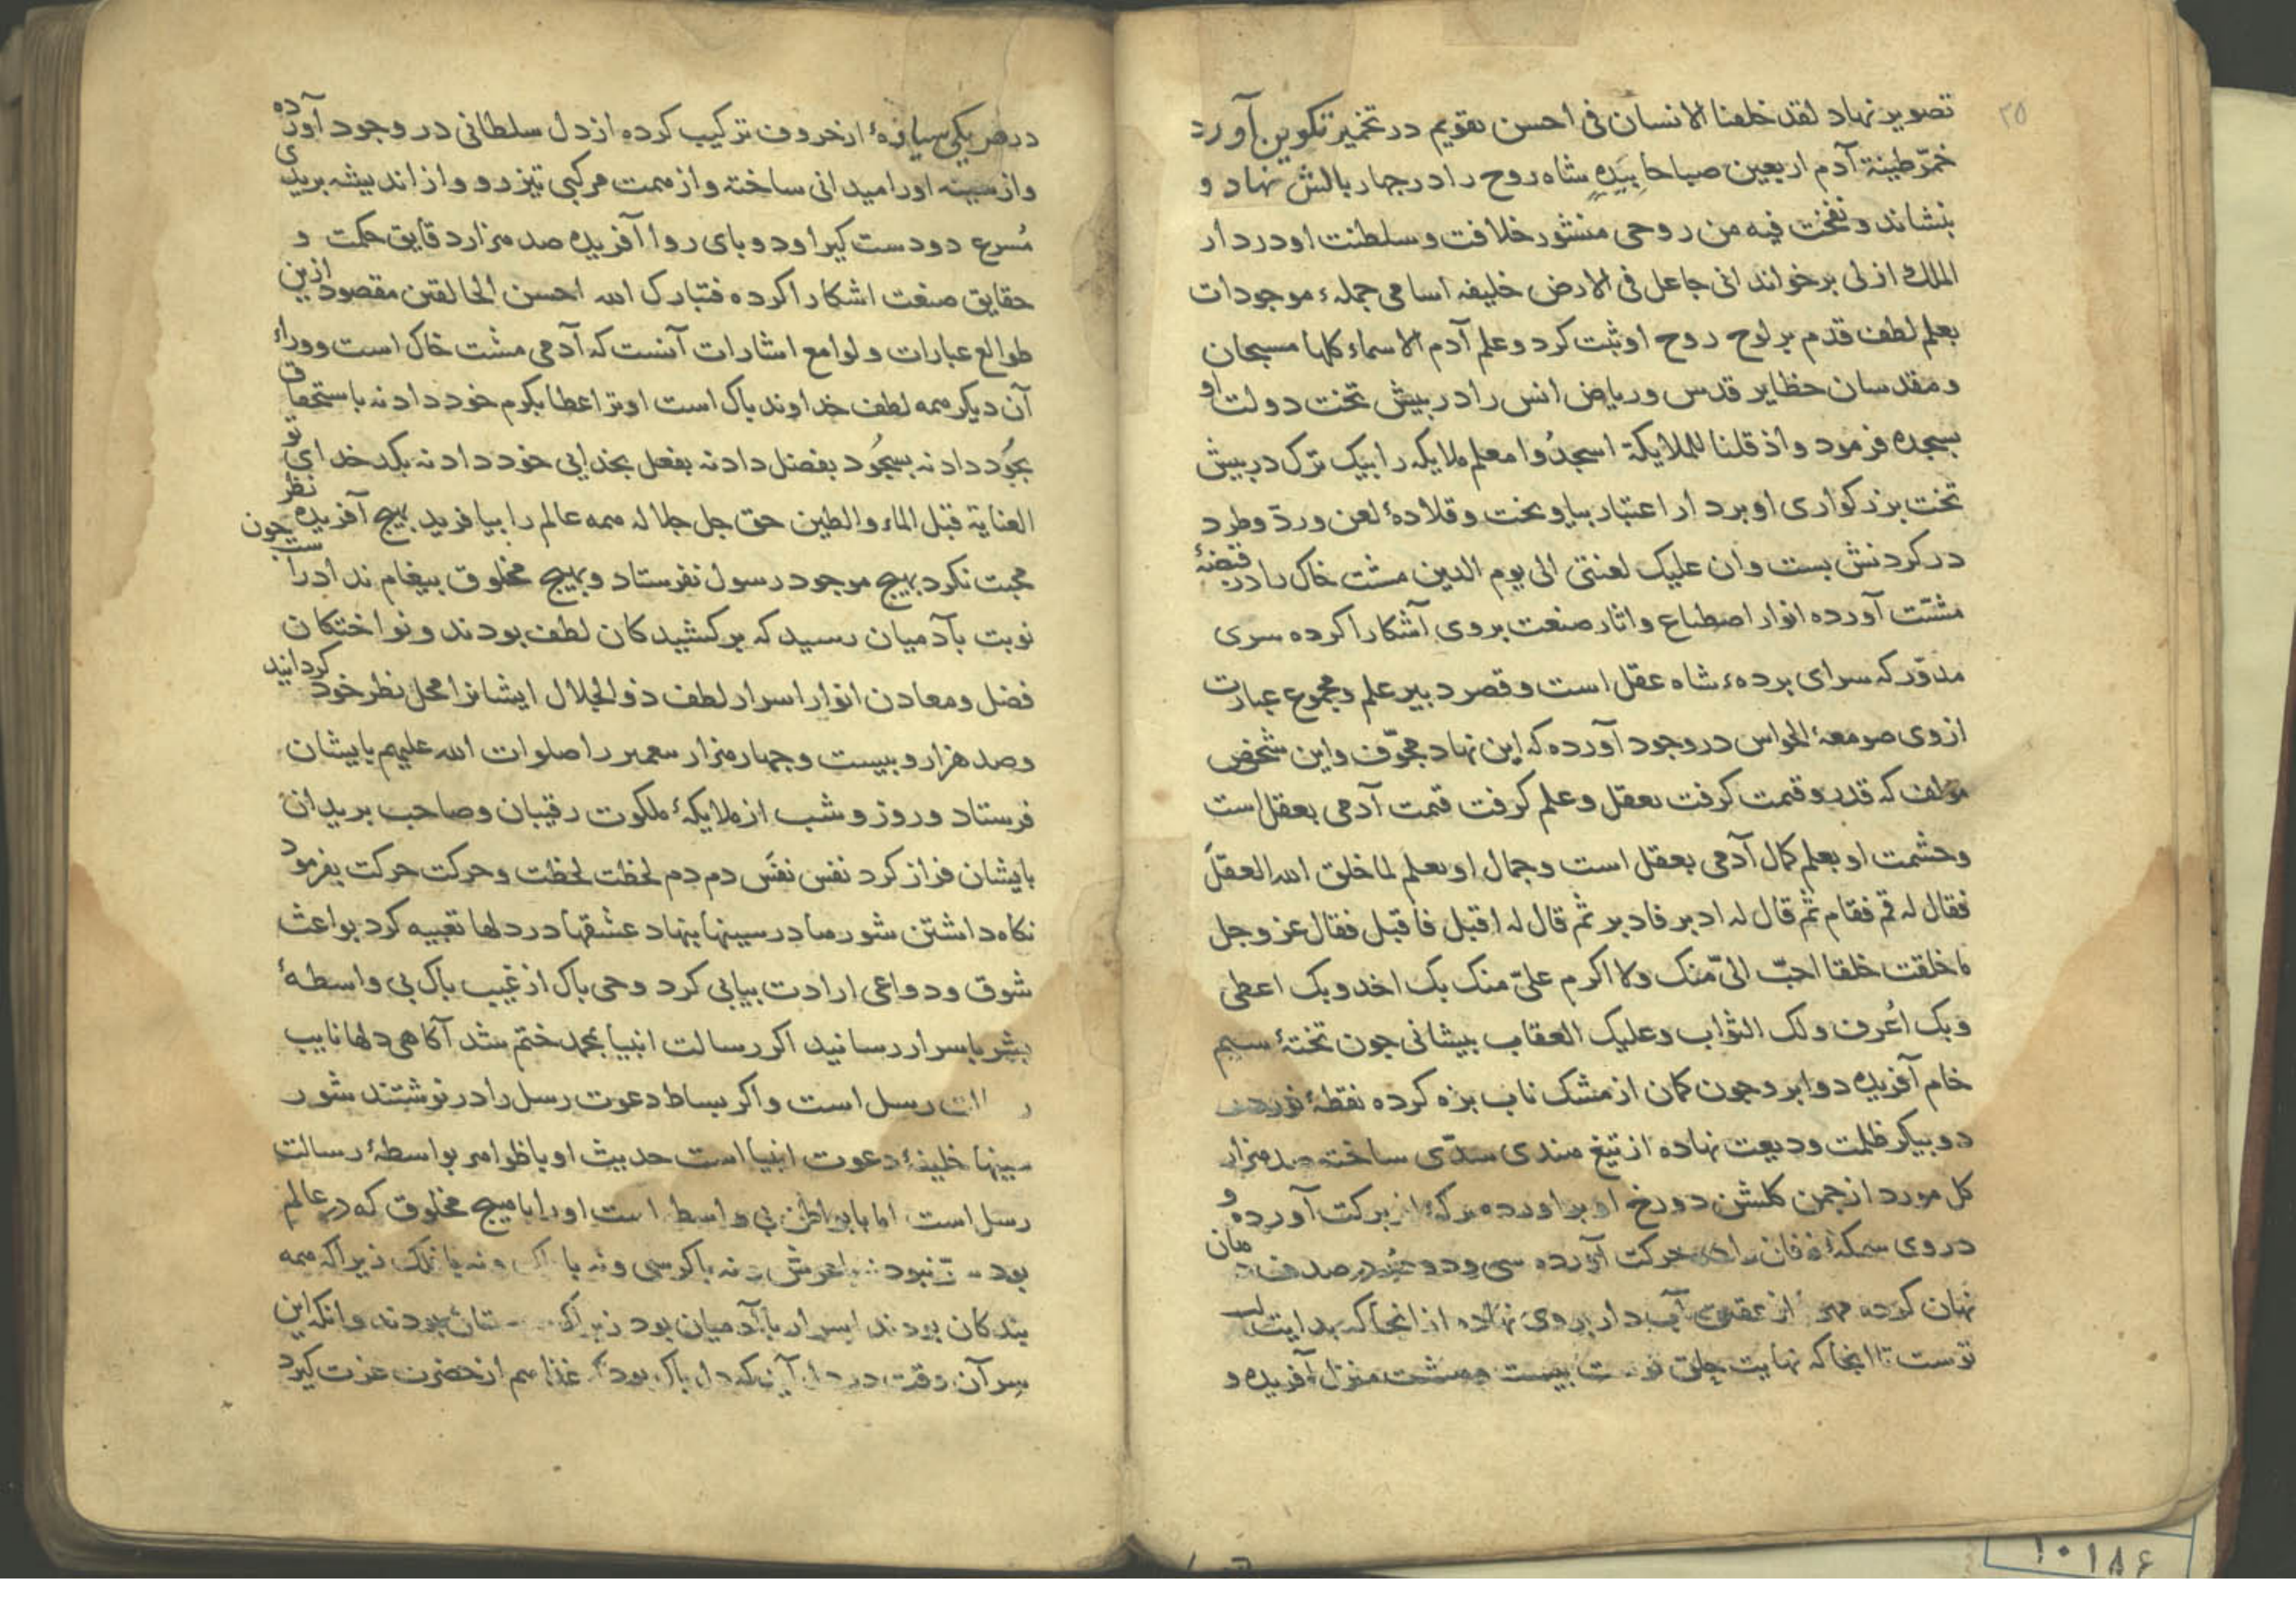 ٢٥
تصویر نهاد لقد خلقنا الانسان فی احسن تقویم در تخمیر تکوین آورد
خمّر طینة آدم اربعین صباحا بیَدِهِ شاه روح را در جهار بالش نهاد و
بنشاند و نفخت فیه من روحی منشور خلافت و سلطنت او در دار
الملک ازلی برخواند انی جاعل فی الارض خلیفه اسامی جملهٔ موجودات
بعلم لطف قدم بر لوح روح او ثبت کرد و علم آدم الاسماء کلها مسبحان
و مقدسان حظایر قدس و ریاض انس را در بیش تخت دولت او
بسجده فرمود و اذ قلنا للملایکة اسجدُوا معلم ملایکه را بیک ترک در بیش
تخت بزرکواری او بر دار اعتبار بیاویخت و قلادهٔ لعن و ردّ و طرد
در کردنش بست و ان علیک لعنتی الی یوم الدین مشت خاک را در قبضهٔ
مشیّت آورده انوار اصطناع و اثار صنعت بروی آشکارا کرده سری
مدوّر که سرای بردهٔ شاه عقل است و قصر دبیر علم و مجموع عبارت
ازوی صومعهٔ الحواس در وجود آورده که این نهاد مجوّف و این شخص
مولف که قدر و قیمت کرفت بعقل و علم کرفت قیمت آدمی بعقل است
و حشمت او بعلم کمال آدمی بعقل است و جمال او بعلم لما خلق الله العقل
فقال له قم فقام ثم قال له ادبر فادبر ثم قال له اقبل فاقبل فقال عز و جل
ما خلقت خلقا احبّ الیّ منک ولا اکرم علیّ منک بک اخد و بک اعطی
و بک اُعرف و لک الثواب و علیک العقاب بیشانی جون تختهٔ سیم
خام آفریده دو ابرو جون کمان از مشک ناب بزه کرده نقطهٔ نور در
دو بیکر ظلمت ودیعت نهاده از تیغ هندی سدّی ساخته صد هزار
کل مورد از جمن کلشن دو رخ او براورده برکهٔ از برکت آورده و
در وی سمکهٔ در حرکت آورده سی و دو در صدف دهان
نهان کرده مهر از عقیق آب دار بروی نهاده از انجا که بدایت لب
توست تا انجا که نهایت حلق توست بیست و هشت منزل آفریده و
در هر یکی سیارهٔ از حروف ترکیب کرده از دل سلطانی در وجود آورده
و از سینه او را میدانی ساخته و از همت مرکبی تیز رو و از اندیشه بریدی
مُسرع دو دست کیرا و دو بای روا آفریده صد هزار دقایق حکمت و
حقایق صنعت اشکارا کرده فتبارک الله احسن الخالقین مقصود ازین
طوالع عبارات و لوامع اشارات آنست که آدمی مشت خاک است و وراء
آن دیکر همه لطف خداوند باک است او ترا عطا بکرم خود داد نه باستحقاق تو
بجُود داد نه بسجُود بفضل داد نه بفعل بخدایی خود داد نه بکدخدایی تو
العنایة قبل الماء و الطین حق جل جلاله همه عالم را بیافرید بهیج آفریده نظر
محبت نکرد بهیج موجود رسول نفرستاد و بهیج مخلوق بیغام نداد راست جون
نوبت بآدمیان رسید که برکشیدکان لطف بودند و نواختکان
فضل و معادن انوار اسرار لطف ذوالجلال ایشانرا محل نظر خود کردانید
و صد هزار و بیست و جهار هزار بیغمبر را صلوات الله علیهم بایشان
فرستاد و روز و شب از ملایکهٔ ملکوت رقیبان و صاحب بریدان
بایشان فراز کرد نفس نفَس دم دم لحظت لحظت و حرکت حرکت بفرمود
نکاه داشتن شورها در سینها بنهاد عشقها در دلها تعبیه کرد بواعث
شوق و دواعی ارادت بیابی کرد وحی باک از غیب باک بی واسطهٔ
بشر باسرار رسانید اکر رسالت انبیا بمحمد ختم شد آکاهی دلها نایب
رسل است و اکر بساط دعوت رسل را در نوشتند شور
سینها خلیفهٔ دعوت انبیا است حدیث او با ظوامر بواسطهٔ رسالت
رسل است اما با بواطن بی واسط است او را با هیج مخلوق که در عالم
بود نبود نه با عرش نه با کرسی و نه با و نه با فلک زیرا که همه
بندکان بودند اسرار با آدمیان بود زیرا که بودند و انکه این
سر آن وقت در دل آید که دل باک بود که غذا هم از حضرت عزت کیرد
١٠١٨۶